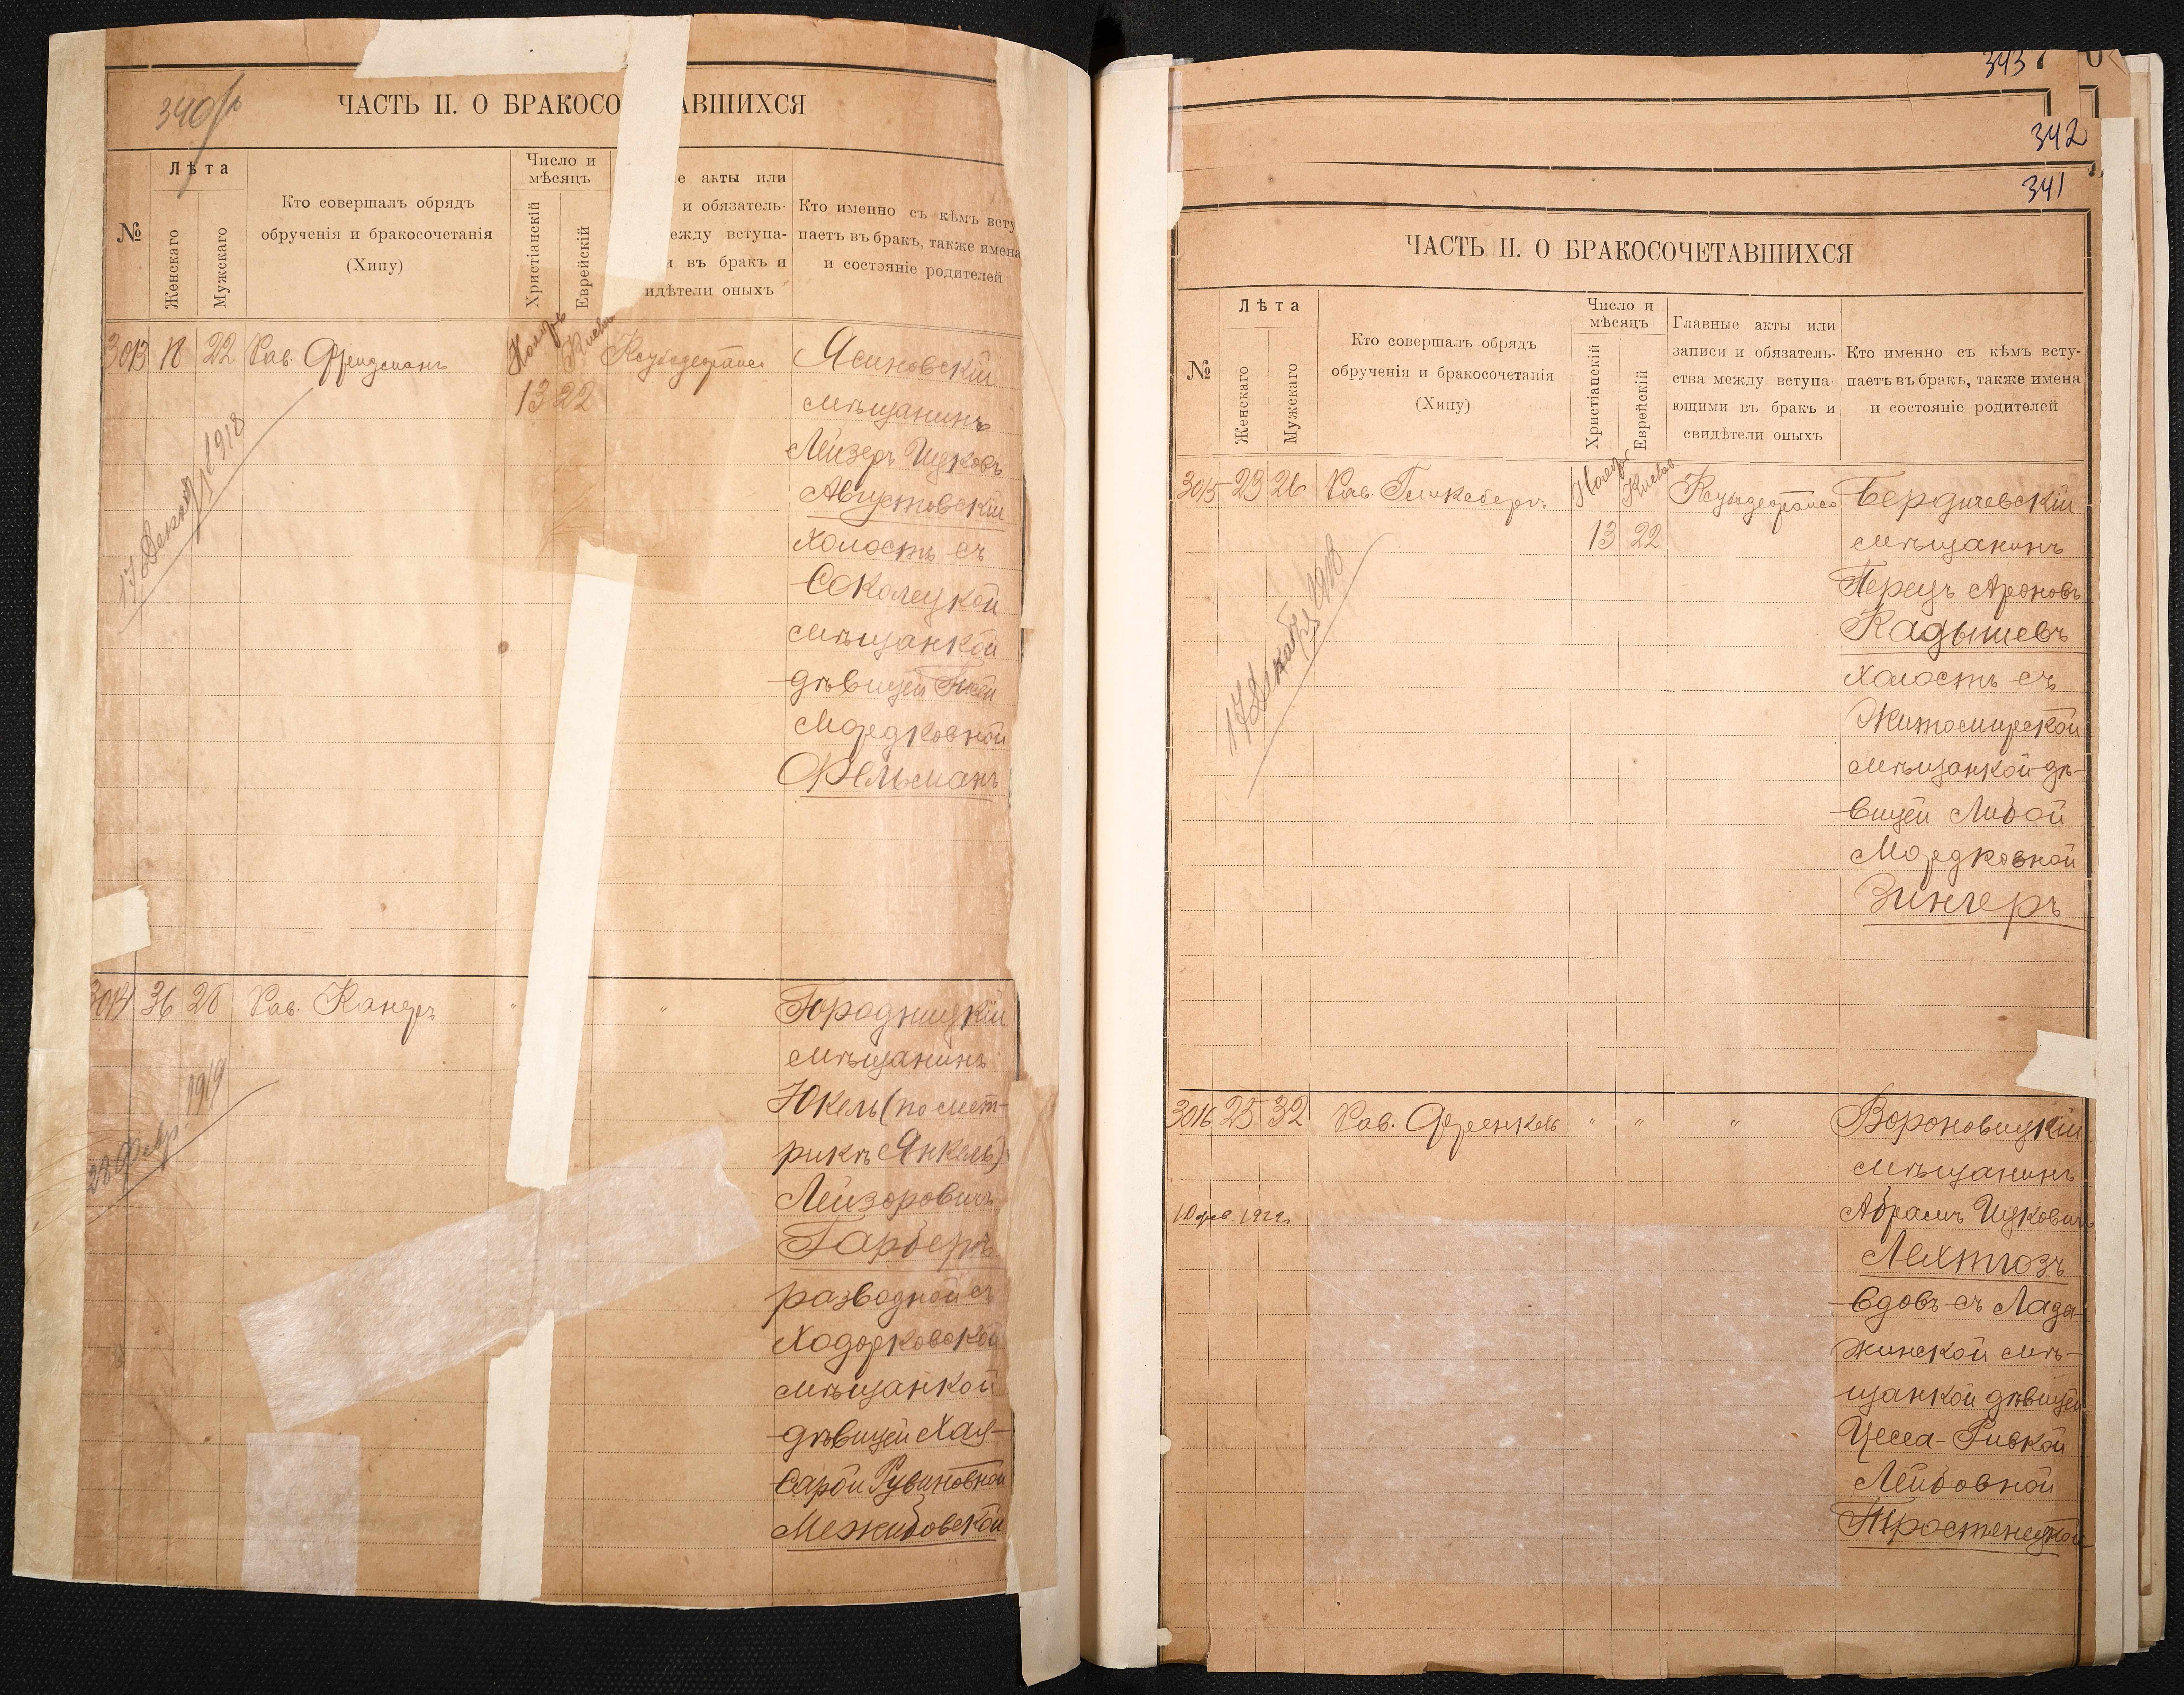 340
ЧАСТЬ II. О БРАКОСО АВШИХСЯ
№
Лѣта
Женскаго
Мужскаго
Кто совершалъ обрядъ
обрученія и бракосочетанія
(Хипу)
Число и
мѣсяцъ
Христіанскій
Еврейскій
е акты или
и обязатель-
ежду вступа-
и въ бракъ и
идѣтели оныхъ
Кто именно съ кѣмъ всту
паетъ въ бракъ, также имена
и состояніе родителей
3013 18 22 Рав. Фридманъ
Ноябрь Кислев
13 22
17 Декабря 1918
Ясиновскій
мѣщанинъ
Лейзеръ Ицковъ
Августовскій
холостъ съ
Соколецкой
мѣщанкой
дѣвицей
Мордковной
Фельманъ
3014 36 26 Рав. Канеръ " "
28 Февр. 1919
Городницкій
мѣщанинъ
Юкель (по мет-
рикѣ Янкель)
Лейзоровичъ
Гарберъ
разводной съ
Ходорковской
мѣщанкой
дѣвицей Хая-
Сарой Рувиновной
Межибовской
343
342
341
ЧАСТЬ II. О БРАКОСОЧЕТАВШИХСЯ
№
Лѣта
Женскаго
Мужскаго
Кто совершалъ обрядъ
обрученія и бракосочетанія
(Хипу)
Число и
мѣсяцъ
Христіанскій
Еврейскій
Главные акты или
записи и обязатель-
ства между вступа-
ющими въ бракъ и
свидѣтели оныхъ
Кто именно съ кѣмъ всту-
паетъ въ бракъ, также имена
и состояніе родителей
3015 23 26 Рав. Гликсбергъ
Ноябрь Кислев
13 22
17 Декабря 1918
Бердичевскій
мѣщанинъ
Перецъ Ароновъ
Кадышевъ
холостъ съ
Житомирской
мѣщанкой дѣ-
вицей Либой
Мордковной
Зингеръ
3016 25 32 Рав. Френкель " " "
10 фев. 1922.
Вороновицкій
мѣщанинъ
Абрамъ Ицковичъ
Лехтгозъ
вдовъ съ Лада-
жинской мѣ-
щанкой дѣвицей
Цесса-Ривкой
Лейбовной
Тростенецкой